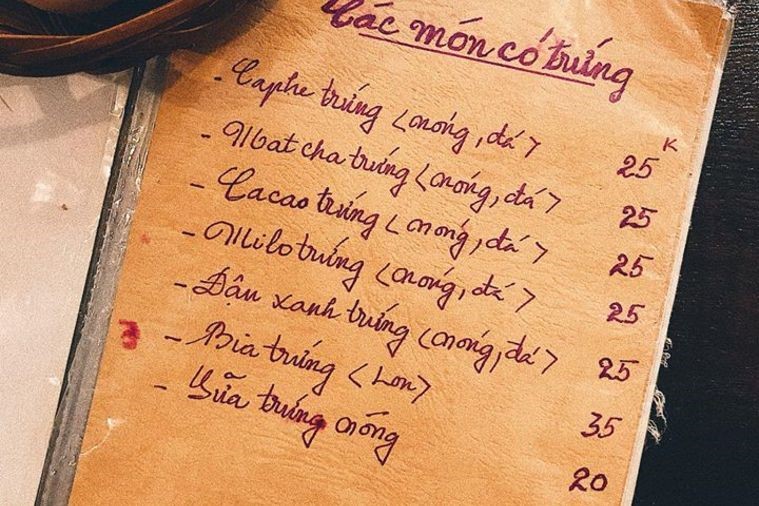 Các món có trứng
- Caphe trứng <nóng, đá> 25 K
- Matcha trứng <nóng, đá> 25
- Cacao trứng <nóng, đá> 25
- Milo trứng <nóng, đá> 25
- Đậu xanh trứng <nóng, đá> 25
- Bia trứng <Lon> 35
- Sữa trứng nóng 20